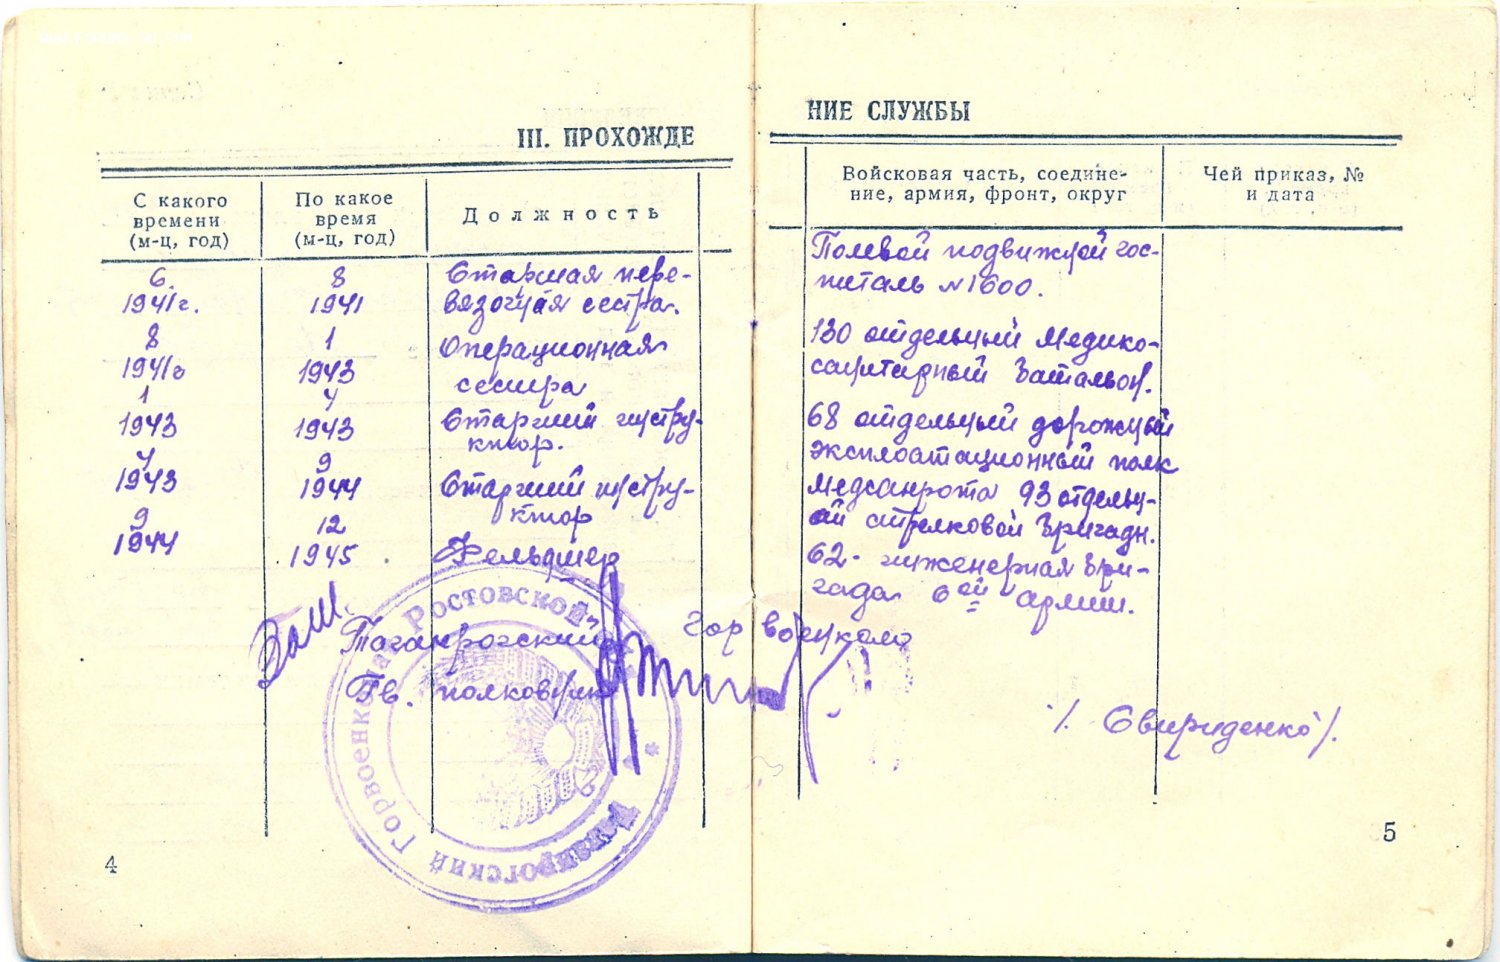 III. ПРОХОЖДЕ
НИЕ СЛУЖБЫ
С какого
времени
(м-ц, год)
По какое
время
(м-ц, год)
Должность
Войсковая часть, соедине-
ние, армия, фронт, округ
Чей приказ, №
и дата
6.
1941г.
8
1941
Старшая пере-
вязочная сестра.
Полевой подвижной гос-
питаль №1600.
8
1941г
1
1943
Операционная
сестра
130 отдельный Медико-
санитарный батальон.
1
1943
4
1943
Старший инстру-
ктор.
68 отдельный дорожный
эксплоатационный полк
4
1943
9
1944
Старший инстру-
ктор
Медсанрота 93 отдельн-
ой стрелковой бригады.
9
1944
12
1945
Фельдшер
62- инженерная бри-
гада 6ой армии.
Таганрогский Горвоенком
Гв. полковник
/. Свириденко /.
Таганрогский Горвоенкомат Ростовской
4
5